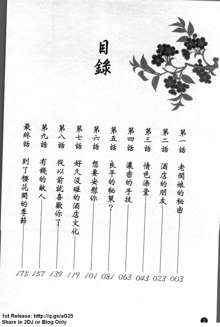 目錄
第一話 老闆娘的秘密 003
第二話 酒店的朋友 023
第三話 情色漁業 043
第四話 濃密的手技 063
第五話 良辛的秘策? 081
第六話 想要安慰你 101
第七話 好久沒碰的酒店文化 119
第八話 從以前就喜歡你了 139
第九話 有錢的献人 157
最終話 到了櫻花開的季節 175
1st Release: http://q.gs/aG25
Share in 2DJ or Blog Only